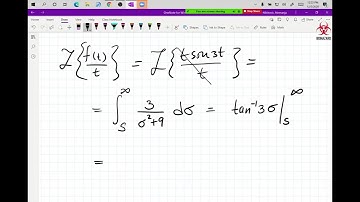 ℒ{f(t)/t} = ℒ{t sin 3t / t} =
= ∫_s^∞ 3/(σ²+9) dσ = tan⁻¹ 3σ |_s^∞
=